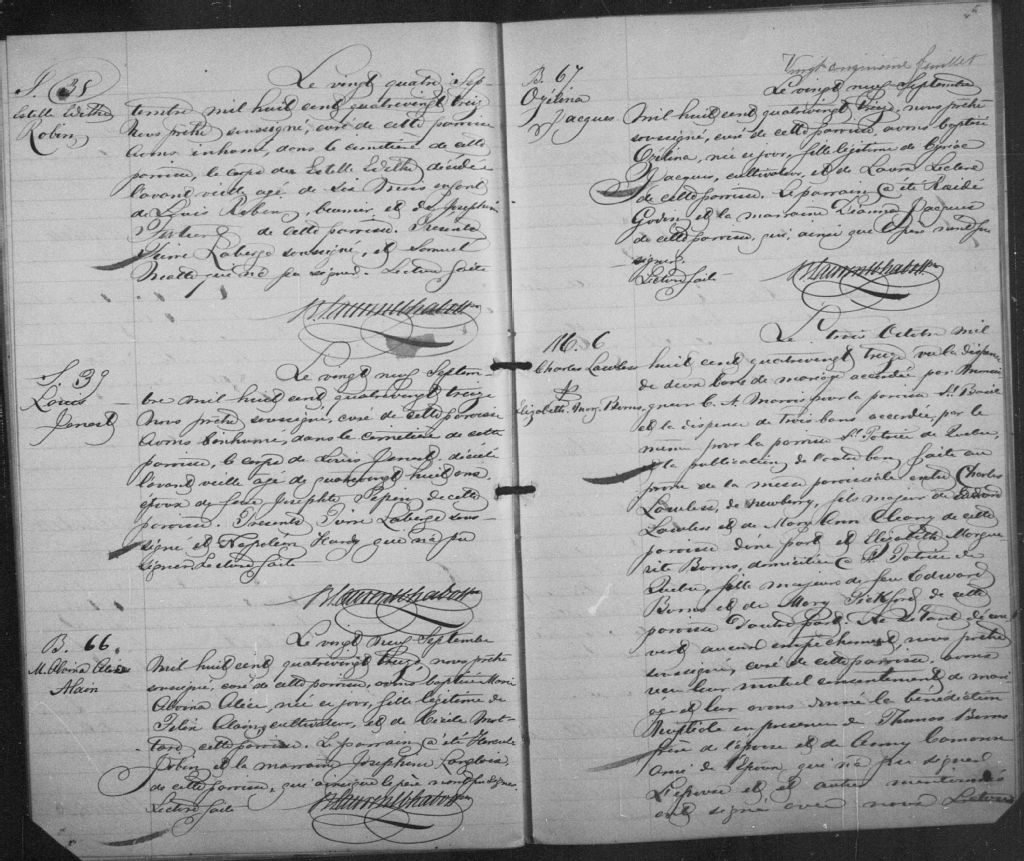 S. 38
Estelle Edithe
Robin
Le vingt quatre Sep-
tembre mil huit cent quatrevingt treize
Nous prêtre soussigné, curé de cette paroisse
avons inhumé, dans le cimetière de cette
paroisse, le corps de Estelle Edithe décédée
l'avant veille agé de Six Mois enfant
de Louis Robin, et de Josephine
de cette paroisse. Présents
Pierre Laberge soussigné, et Samuel
Matte qui n'a pu signer. Lecture faite
S. 39
Louis
Jenest
Le vingt neuf Septem-
bre mil huit cent quatrevingt treize
Nous prêtre soussigné, curé de cette paroisse
avons inhumé, dans le cimetière de cette
paroisse, le corps de Louis Jenest décédé
l'avant veille agé de quatrevingt huit ans
époux de feue Josephte Pepin de cette
paroisse. Présents Pierre Laberge sous-
signé et Napoléon Hardy qui n'a pu
signer Lecture faite
B. 66.
M. Alvina Alice
Alain
Le vingt neuf Septembre
mil huit cent quatrevingt treize, nous prêtre
soussigné, curé de cette paroisse, avons baptisé Marie
Alvina Alice, née ce jour, fille légitime de
Alain, cultivateur, et de Cécile Mot-
tard cette paroisse. Le parrain a été Hercule
Robin et la marraine Josephine Langlois
de cette paroisse, qui ainsi que le père n'ont pu signer
Lecture faite
Vingt onzieme feuillet
B. 67
Ozélina
Jacques
Le vingt neuf Septembre
mil huit cent quatrevingt treize, nous prêtre
soussigné, curé de cette paroisse, avons baptisé
Ozélina, née ce jour, fille légitime de Cyrice
Jacques, cultivateur, et de Laura Leclerc
de cette paroisse. Le parrain a été
Godin et la marraine Dianna Jacques
de cette paroisse, qui, ainsi que le père n'ont pu
signer.
Lecture faite
M. 6
Charles Lawless
&
Elizabeth Marg. Berns
Le trois Octobre mil
huit cent quatrevingt treize vu la dispense
de deux bans de mariage accordée par Monsei-
gneur C. A. Marois pour la paroisse St. Basile
et la dispense de trois bans accordée par le
même pour la paroisse St. Patrice de Québec,
& la publication de l'autre ban faite au
prone de la messe paroissiale entre Charles
Lawless, de Newberry, fils majeur de Edward
Lawless et de Mary Ann Cleary de cette
paroisse d'une part et Elizabeth Margue-
rite Berns, domiciliée à St. Patrice de
Québec, fille majeure de feu Edward
Berns et de Mary Pickford de cette
paroisse d'autre part. Ne s'étant décou-
vert aucun empêchement, nous prêtre
soussigné, curé de cette paroisse, avons
reçu leur mutuel consentement de mari-
age et leur avons donné la bénédiction
Nuptiale en presence de Thomas Berns
frère de l'épouse et de
ami de l'époux, qui n'a pu signer
L'époux et autres mentionnés
ont signé avec nous Lecture